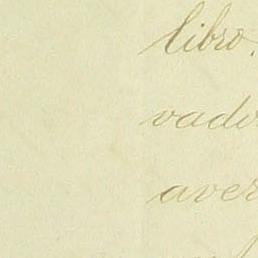 libro.
vado
aver